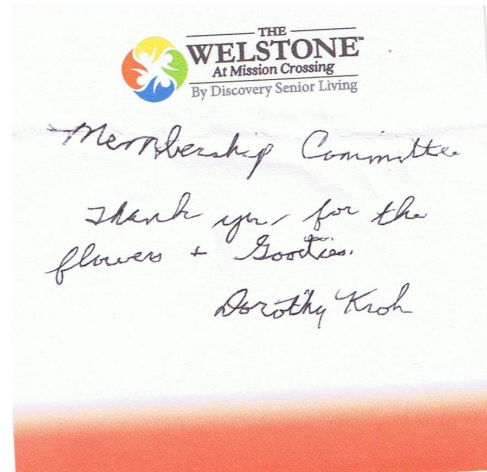 THE
WELSTONE™
At Mission Crossing
By Discovery Senior Living
Membership Committee
Thank you for the
flowers + Goodies.
Dorothy Kroh